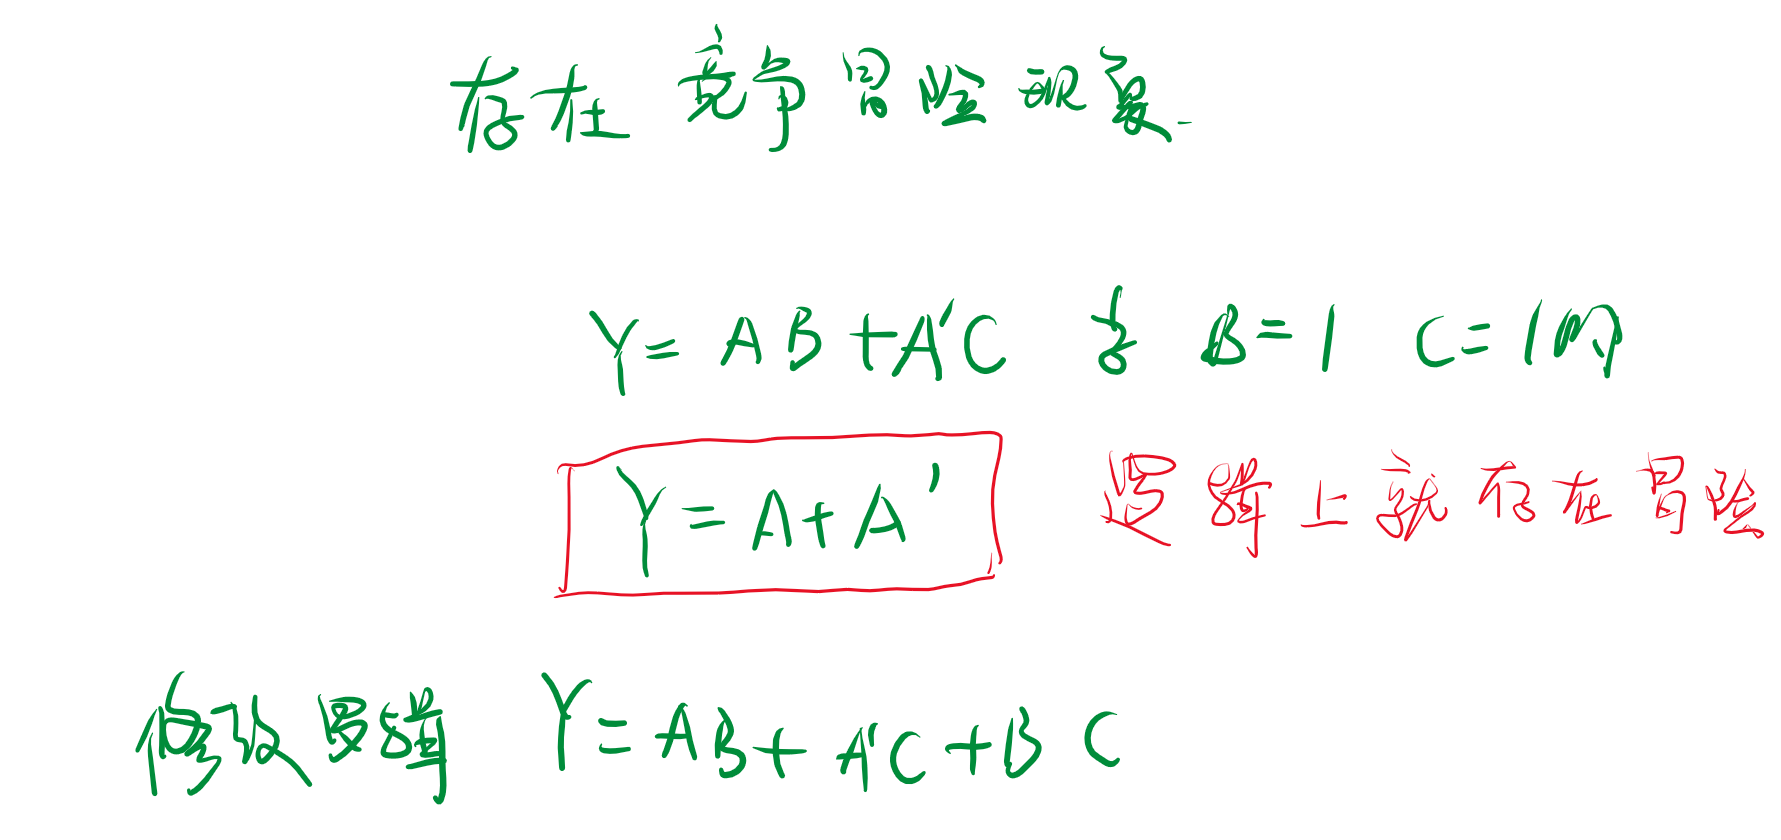 存在 竞争冒险现象.
Y = AB + A'C 当 B = 1 C = 1 时
Y = A + A' 逻辑上就存在冒险
修改逻辑 Y = AB + A'C + BC